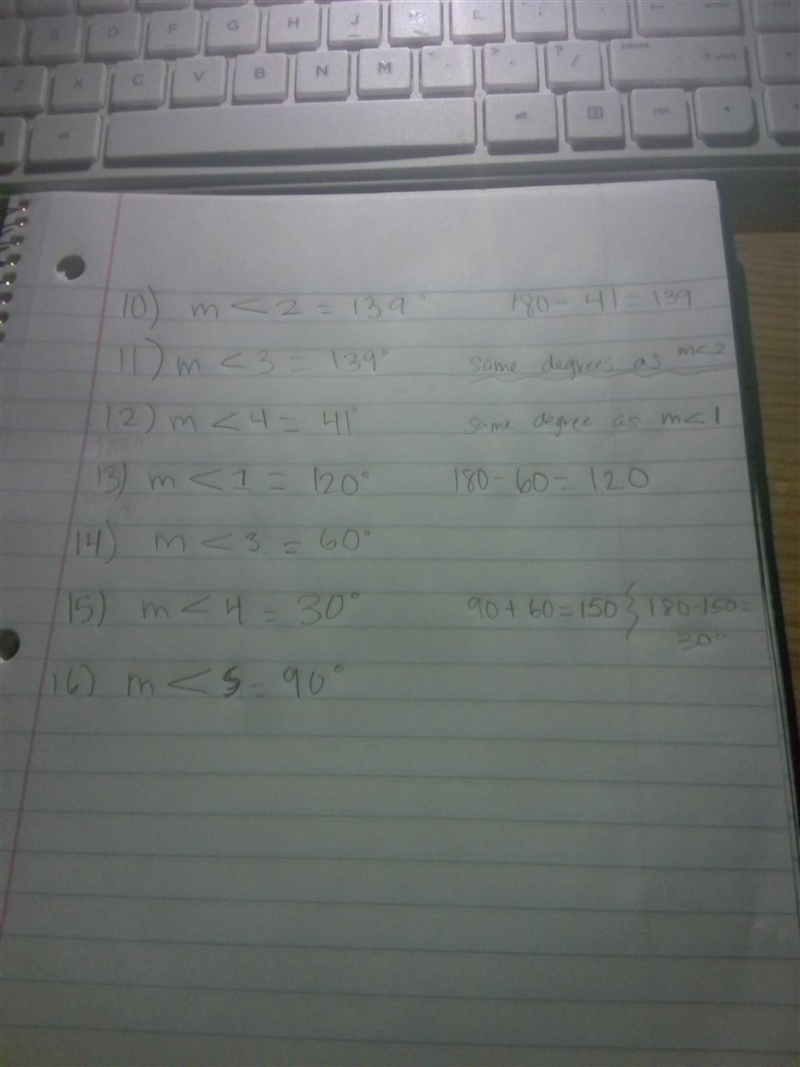 S D F G H J K L ;
Z X C V B N M < > ? /
alt alt ctrl
10) m < 2 = 139° 180 - 41 = 139
11) m < 3 = 139° same degrees as m<2
12) m < 4 = 41° same degree as m<1
13) m < 1 = 120° 180 - 60 = 120
14) m < 3 = 60°
15) m < 4 = 30° 90 + 60 = 150 } 180-150=
30°
16) m < 5 = 90°